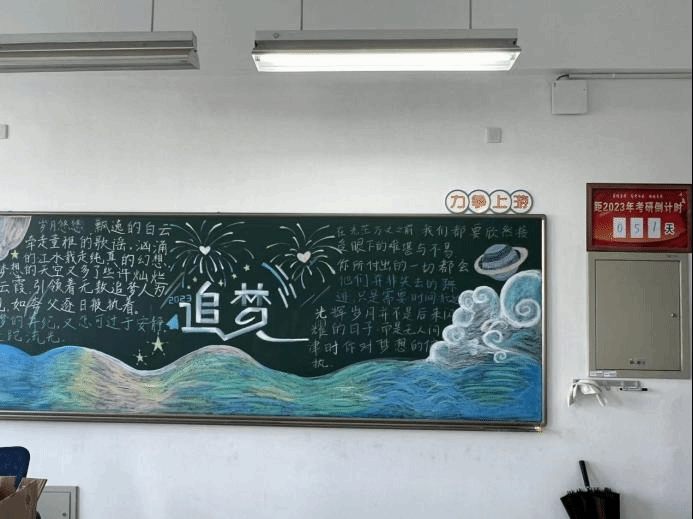 力争上游
距2023年考研倒计时
051天
岁月悠悠 飘逸的白云
牵走童稚的歌谣.汹涌
的江水载走纯真的幻想.
梦想的天空又多了些许灿烂
云霞,引领着无数追梦人为
如夸父逐日般执着.
梦的年纪,又怎可过于安静
2023
追梦
在光芒万丈之前 我们都要欣然接
受眼下的难堪与不易
你所付出的一切都会
他们并非失去的踪
迹,只是需要时间
光辉岁月并不是后来
耀的日子 而是无人问
津时你对梦想的
执.